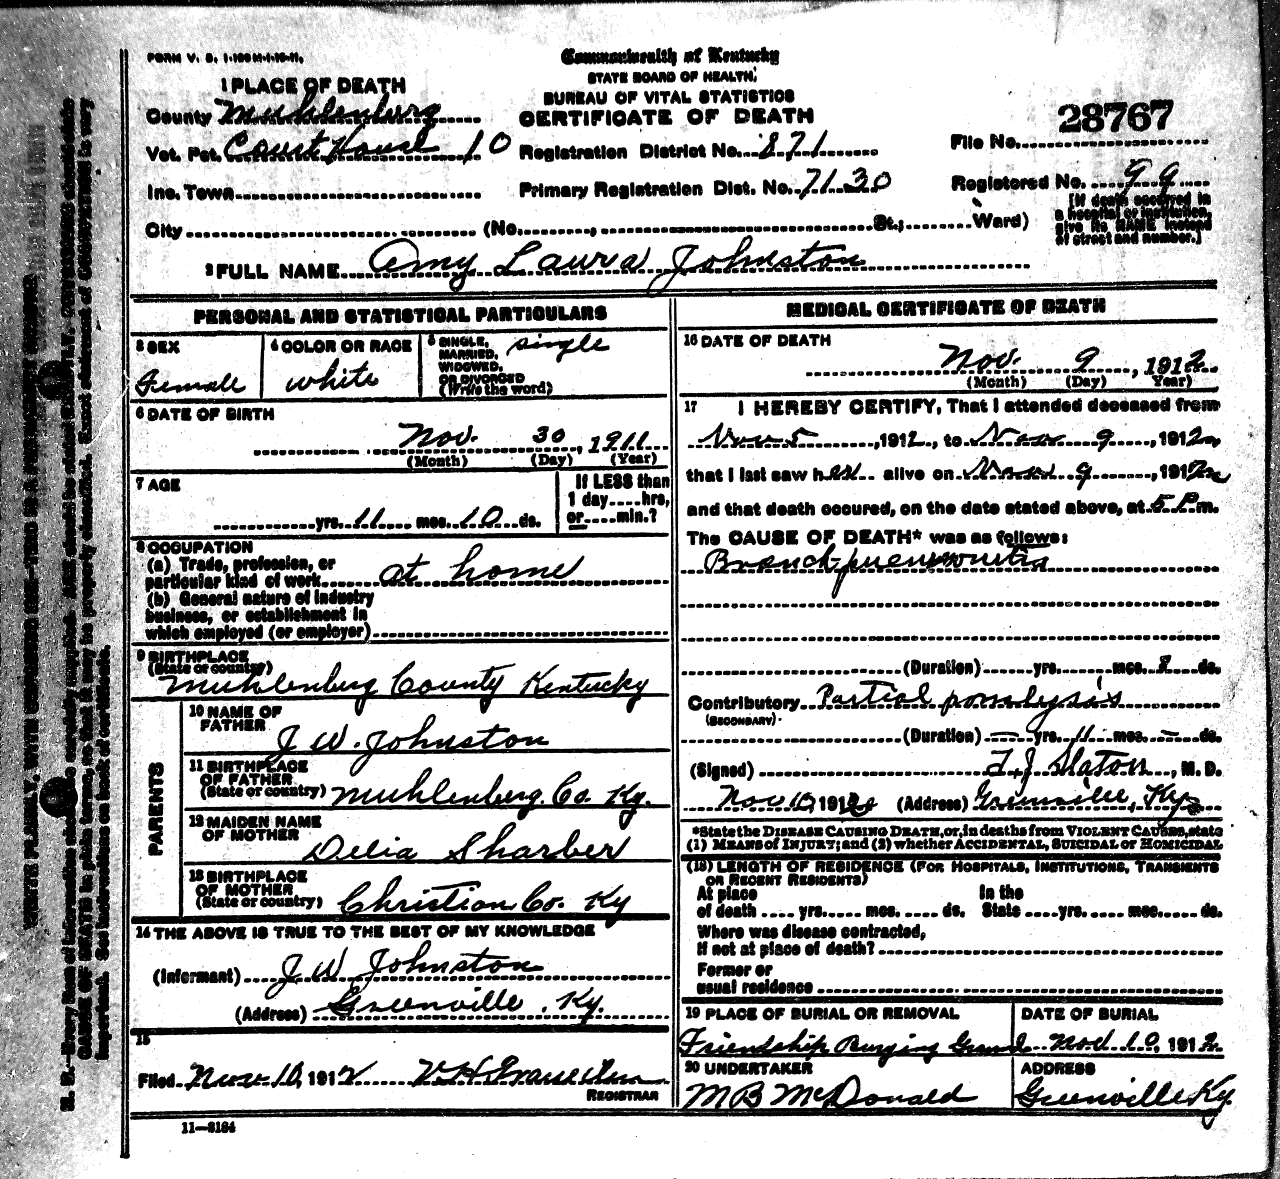 FORM V. S. 1-100M-1-10-11.
Commonwealth of Kentucky
STATE BOARD OF HEALTH.
BUREAU OF VITAL STATISTICS
CERTIFICATE OF DEATH
1 PLACE OF DEATH
County Muhlenberg
Vot. Pct. Court House 10
Inc. Town
City (No. , St.; Ward)
Registration District No. 871
Primary Registration Dist. No. 7130
File No. 28767
Registered No. 99
[If death occurred in
a hospital or institution,
give its NAME instead
of street and number.]
2 FULL NAME Amy Laura Johnston
PERSONAL AND STATISTICAL PARTICULARS
3 SEX
Female
4 COLOR OR RACE
white
5 SINGLE,
MARRIED,
WIDOWED,
OR DIVORCED
(Write the word)
single
6 DATE OF BIRTH
Nov. 30, 1911
(Month) (Day) (Year)
7 AGE
yrs. 11 mos. 10 ds.
If LESS than
1 day....hrs,
or....min.?
8 OCCUPATION
(a) Trade, profession, or
particular kind of work at home
(b) General nature of industry
business, or establishment in
which employed (or employer)
9 BIRTHPLACE
(State or country)
Muhlenberg County Kentucky
PARENTS
10 NAME OF
FATHER
J W. Johnston
11 BIRTHPLACE
OF FATHER
(State or country) Muhlenberg. Co. Ky.
12 MAIDEN NAME
OF MOTHER
Delia Sharber
13 BIRTHPLACE
OF MOTHER
(State or country) Christian Co. Ky
14 THE ABOVE IS TRUE TO THE BEST OF MY KNOWLEDGE
(Informant) J W Johnston
(Address) Greenville. Ky.
15
Filed Nov 10, 1912
REGISTRAR
11—3184
MEDICAL CERTIFICATE OF DEATH
16 DATE OF DEATH
Nov. 9, 1912
(Month) (Day) Year)
17 I HEREBY CERTIFY, That I attended deceased from
Nov 5, 1912, to Nov 9, 1912,
that I last saw her alive on Nov 9, 1912,
and that death occured, on the date stated above, at 5 P.m.
The CAUSE OF DEATH* was as follows:
Branch-pneumonitia
(Duration) yrs. mos. ds.
Contributory Partial paralysis
(SECONDARY)
(Duration) — yrs. 11 mos. — ds.
(Signed) T. J Slaton, M. D.
Nov 10, 1912 (Address) Greenville, Ky
*State the DISEASE CAUSING DEATH, or, in deaths from VIOLENT CAUSES, state
(1) MEANS of INJURY; and (2) whether ACCIDENTAL, SUICIDAL or HOMICIDAL
(18) LENGTH OF RESIDENCE (FOR HOSPITALS, INSTITUTIONS, TRANSIENTS
OR RECENT RESIDENTS)
At place In the
of death .... yrs. .... mos. .... ds. State .... yrs. .... mos. .... ds.
Where was disease contracted,
if not at place of death?
Former or
usual residence
19 PLACE OF BURIAL OR REMOVAL
Friendship Burying Ground
DATE OF BURIAL
Nov 10, 1912
20 UNDERTAKER
M B McDonald
ADDRESS
Greenville Ky